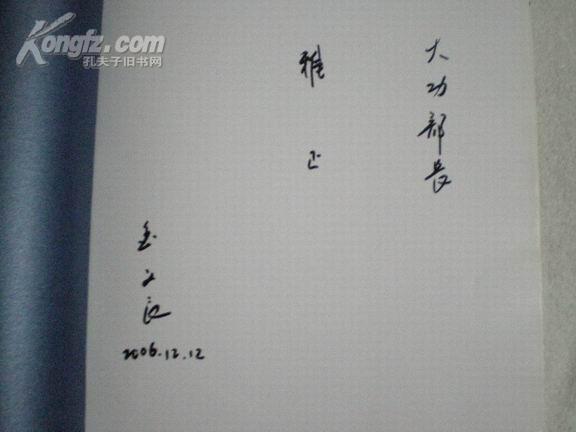 Kongfz.com
孔夫子旧书网
大功部长
雅正
2006.12.12